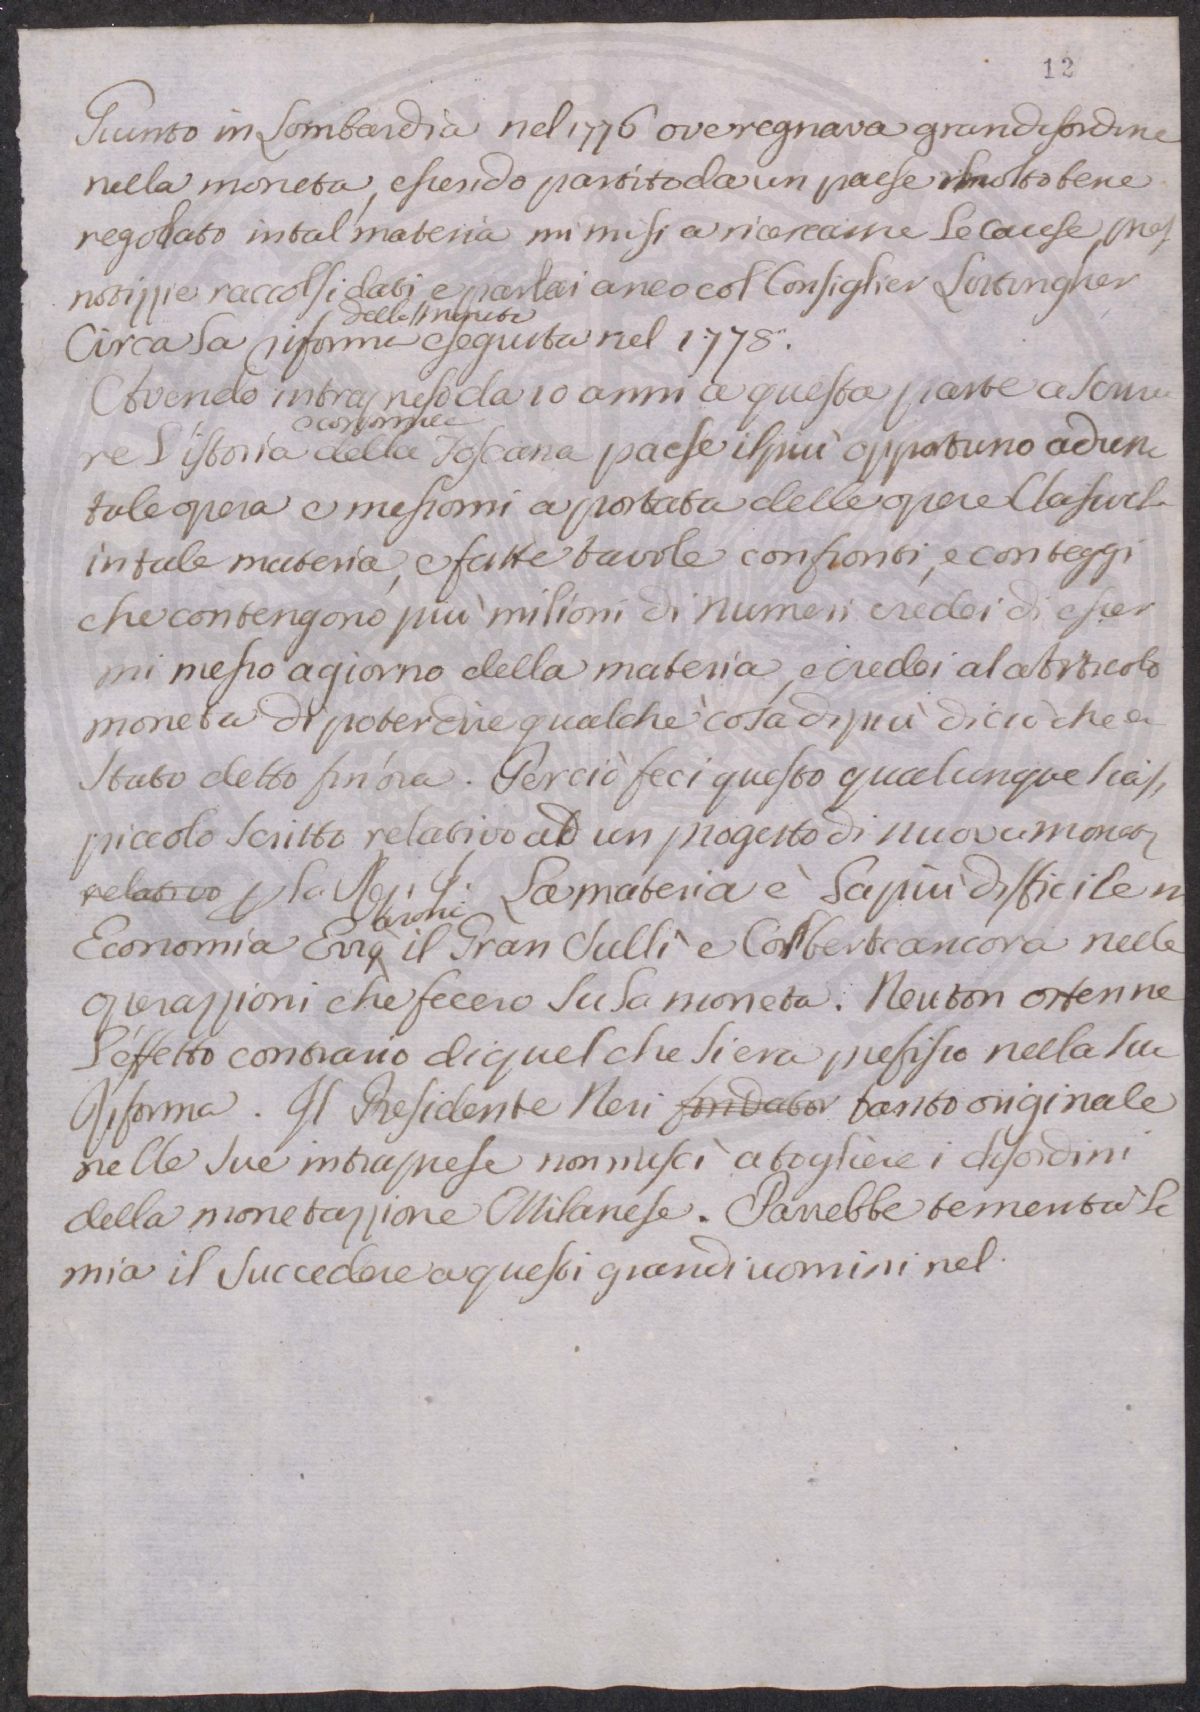 12
Giunto in Lombardia nel 1776 ove regnava gran disordine
nella moneta, essendo partito da un paese molto bene
regolato in tal materia mi misi a ricercarne le cause, presi
notizzie raccolsi dati e parlai anco col Consiglier Lottingher
della moneta
Circa la riforma eseguita nel 1778.
Avendo intrapreso da 10 anni a questa parte a scrive
economica
re l'istoria della Toscana paese il più opportuno ad una
tale opera e messomi a portata delle opere Classiche
in tale materia, e fatte tavole confronti, e conteggi
che contengono più milioni di numeri credei di esser
mi messo a giorno della materia, e credei al articolo
moneta di poter dire qualche cosa di più di ciò che è
stato detto fin'ora. Perciò feci questo qualunque siasi
piccolo scritto relativo ad un progetto di nuova moneta
relativo p la Rep. C. La materia è la più difficile in
arono
Economia Erra il Gran Sullì e Colbert ancora nelle
operazzioni che fecero su la moneta. Neuton ottenne
l'effetto contrario di quel che si era prefisso nella sua
Riforma. Il Presidente Neri fondator tanto originale
nelle sue intraprese non riuscì a togliere i disordini
della monetazzione Milanese. Parrebbe temerità la
mia il succedere a questi grandi uomini nel